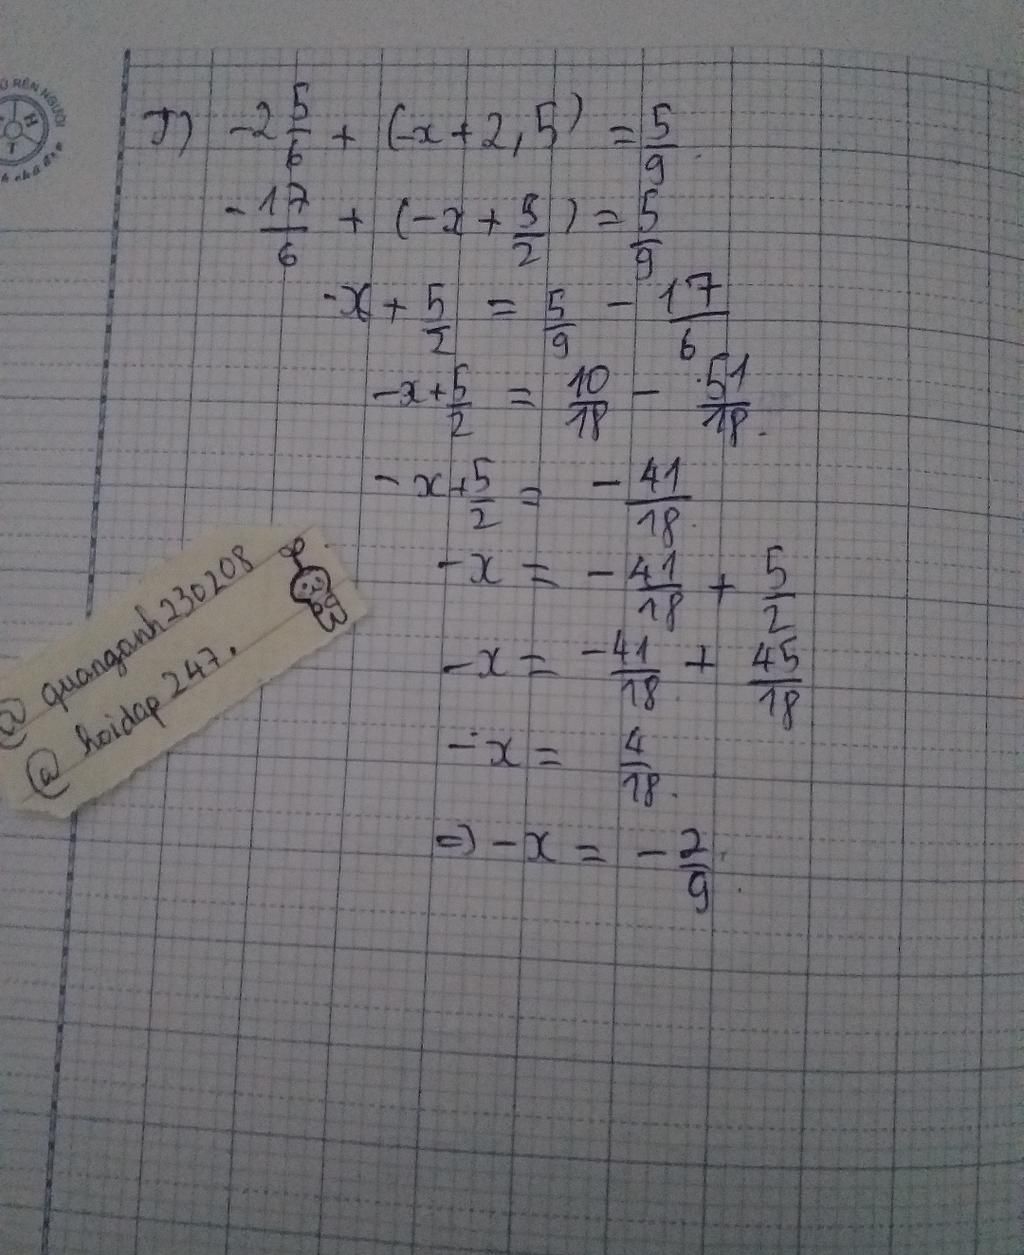 Ơ RÈN NGƯỜI
J) -2 5/6 + (-x + 2,5) = 5/9
-17/6 + (-x + 5/2) = 5/9
-x + 5/2 = 5/9 - 17/6
-x + 5/2 = 10/18 - 51/18.
-x + 5/2 = -41/18
-x = -41/18 + 5/2
-x = -41/18 + 45/18
-x = 4/18.
=> -x = -2/9.
@ quanganh230208
@ hoidap 247.